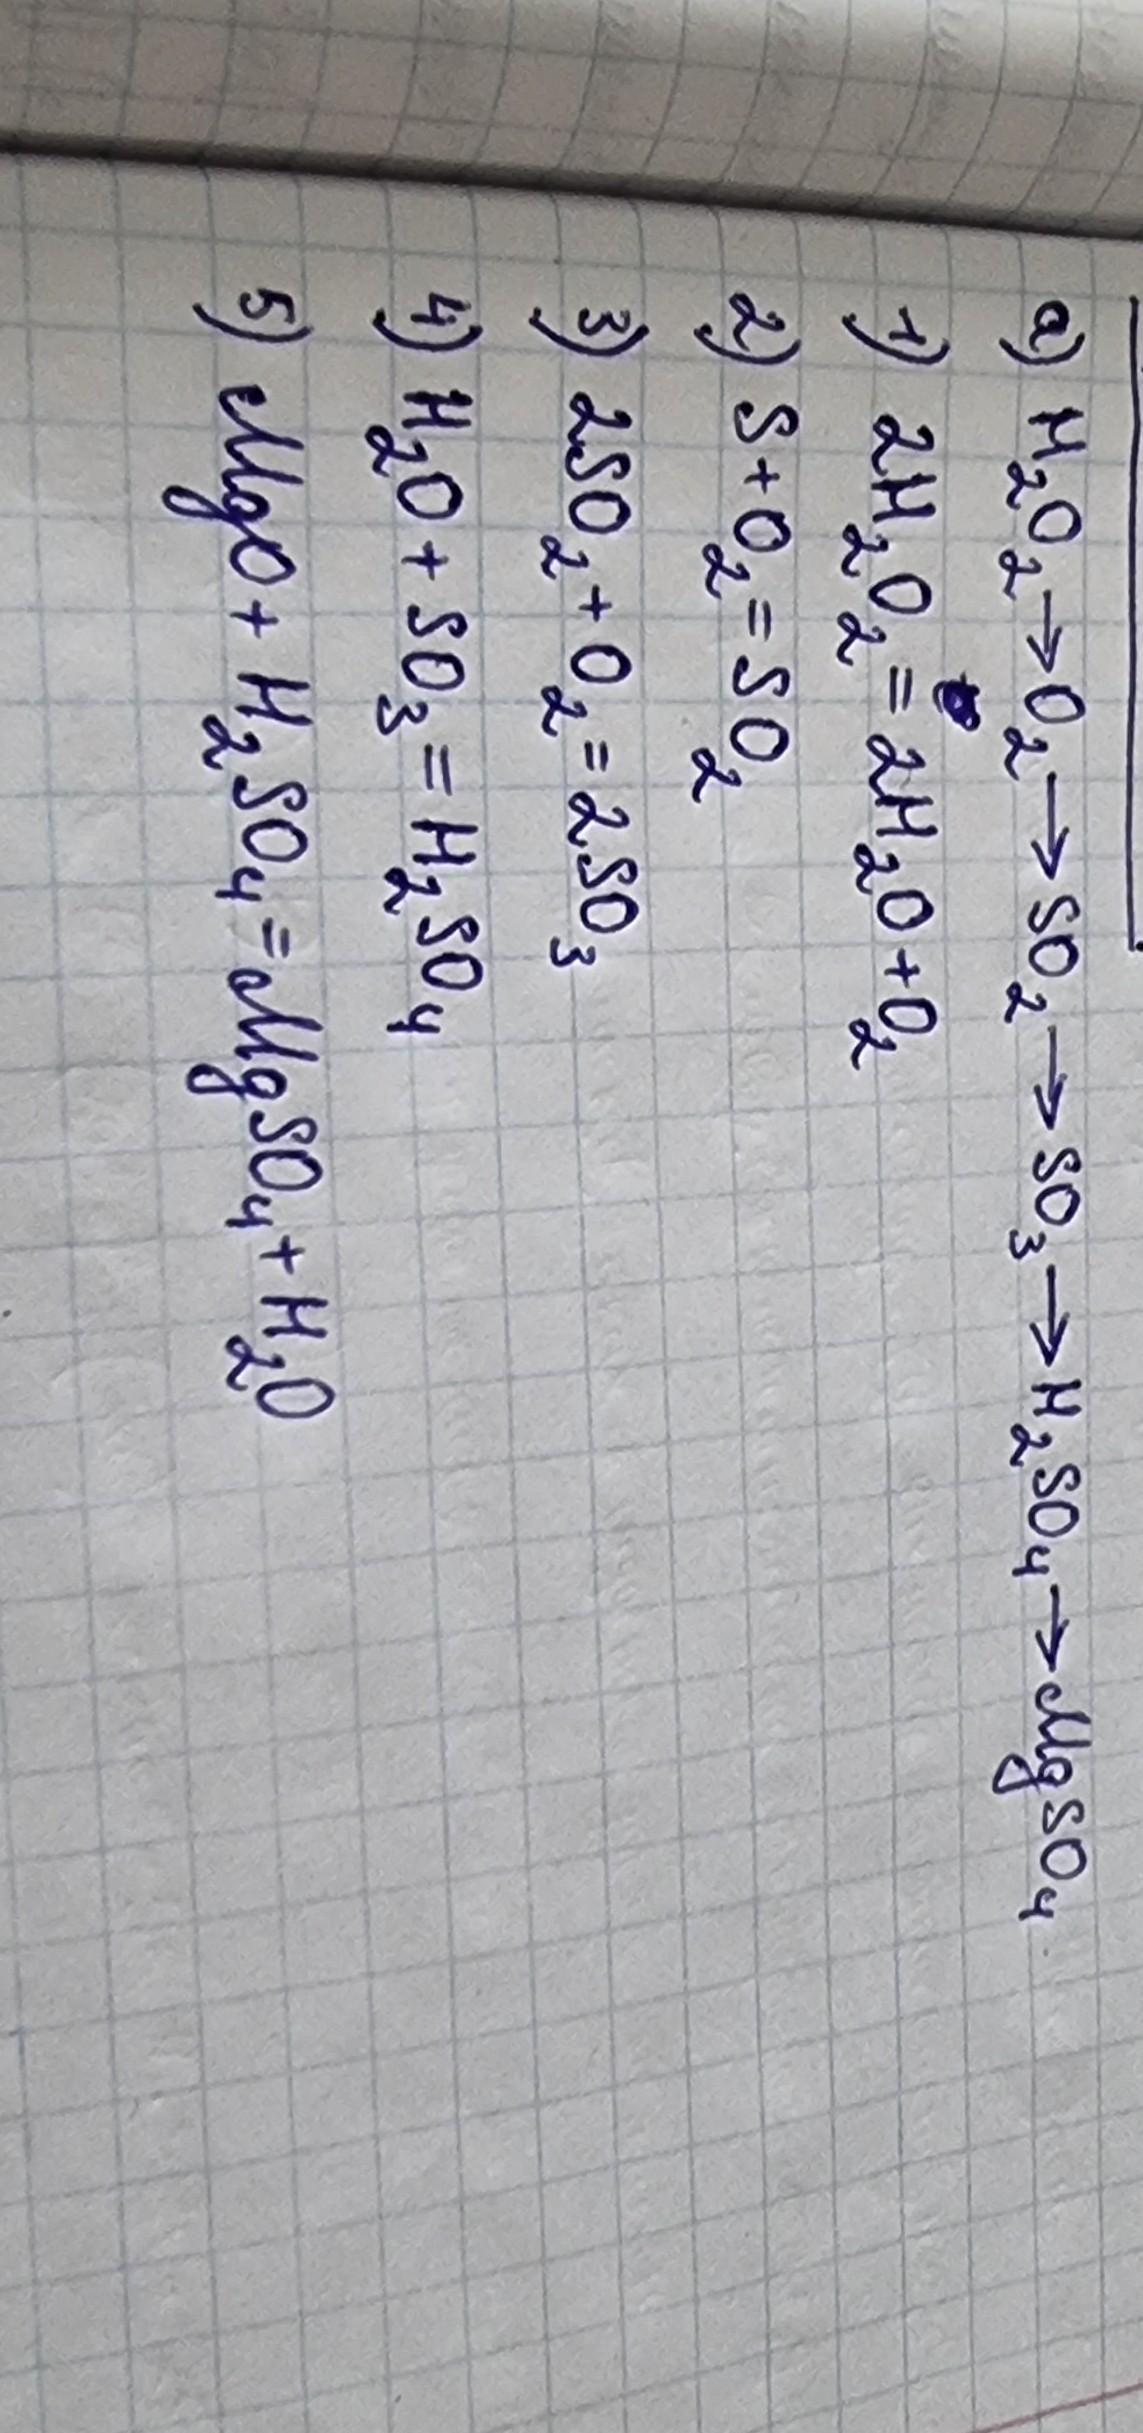 а) H₂O₂→O₂→SO₂→SO₃→H₂SO₄→MgSO₄
1) 2H₂O₂=2H₂O+O₂
2) S+O₂=SO₂
3) 2SO₂+O₂=2SO₃
4) H₂O+SO₃=H₂SO₄
5) MgO+H₂SO₄=MgSO₄+H₂O